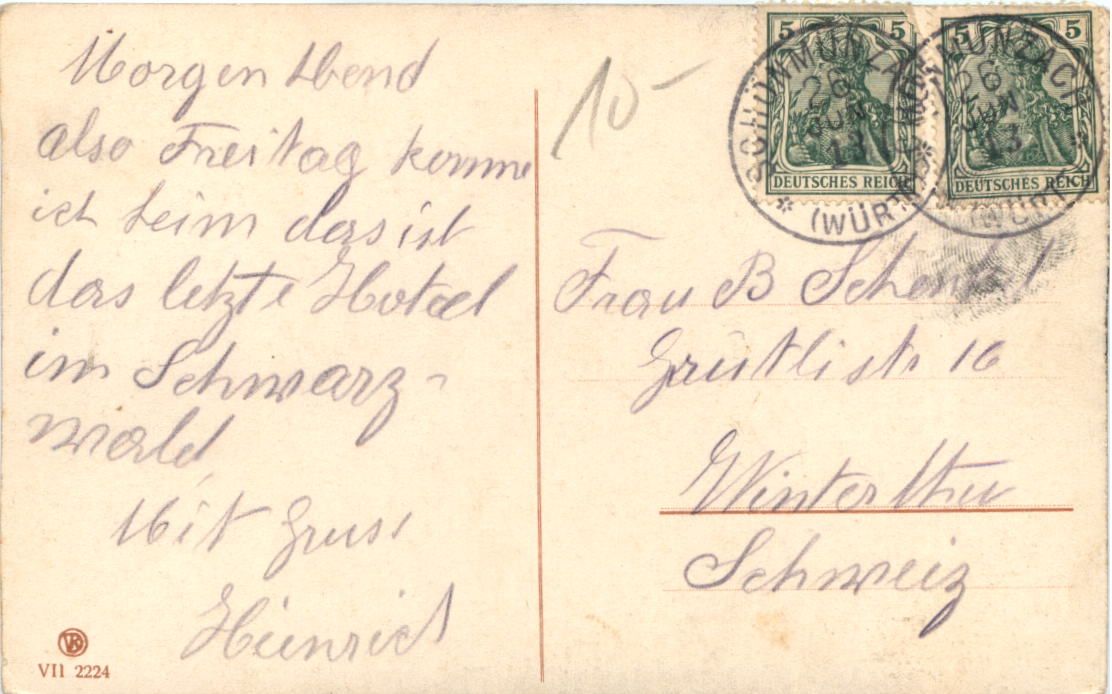 Morgen Abend
also Freitag komme
ich heim das ist
das letzte Hotel
im Schwarz-
wald
Mit Gruss
Heinrich
VII 2224
10-
5 5
5 5
DEUTSCHES REICH
DEUTSCHES REICH
SCHÖNMÜNZACH
26
JUN
13
(WÜRTT.)
MÜNZACH
26
JUN
13
(WÜRTT.)
Frau B Schenkel
Grütlistr 16
Winterthur
Schweiz